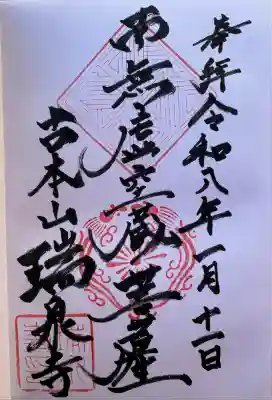 奉拝 令和八年一月十一日
南無虚空蔵菩薩
古本山 瑞泉寺